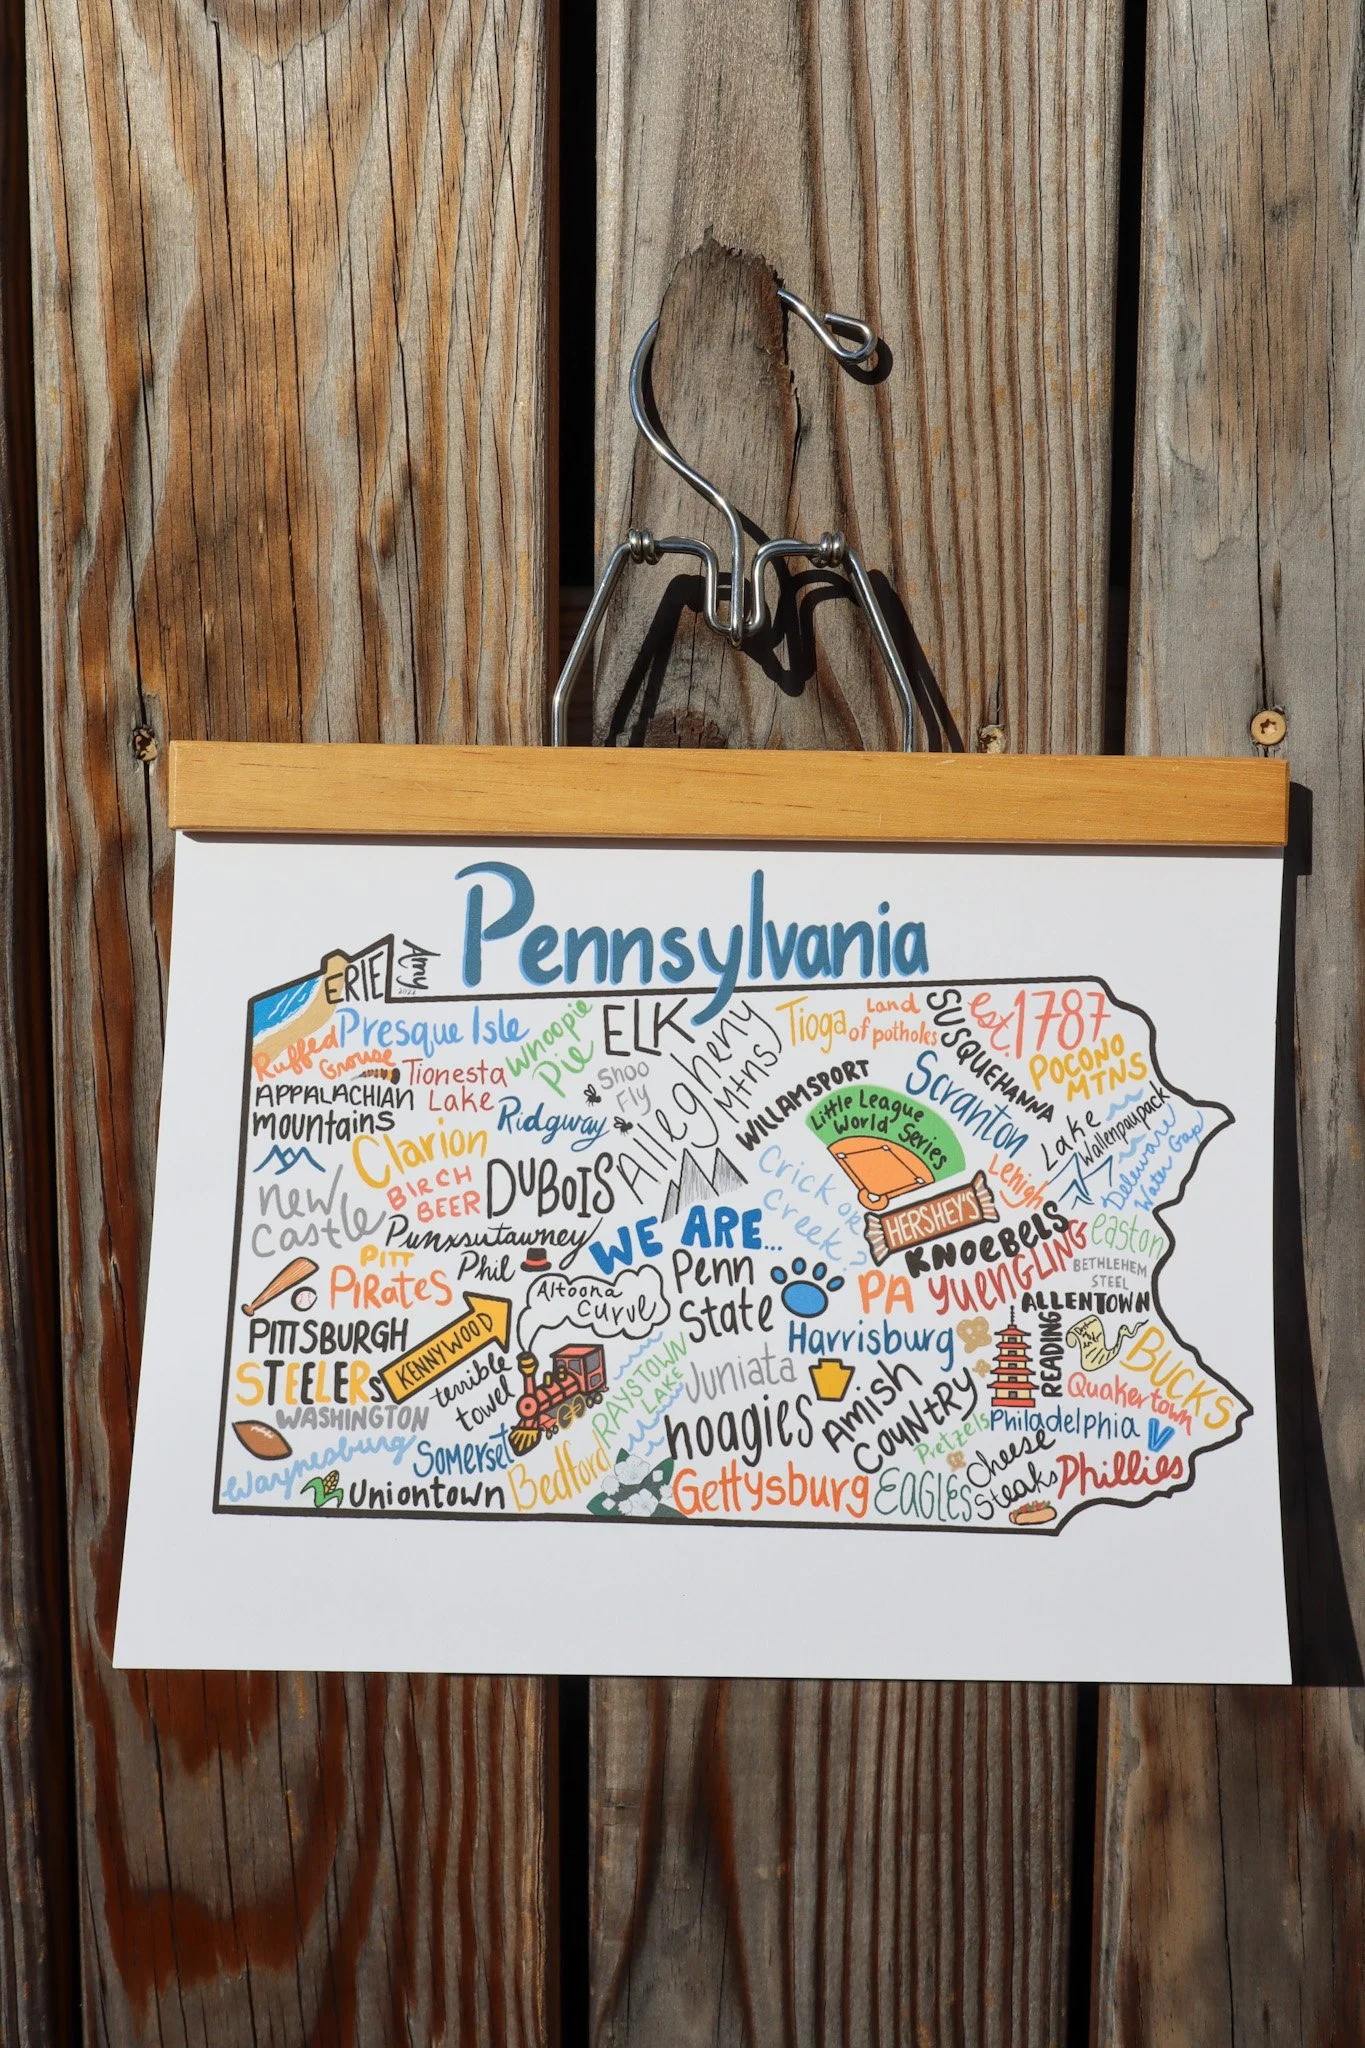 Pennsylvania
ERIE
Amy
2022
Presque Isle
Ruffed
Grouse
Whoopie
Pie
ELK
Allegheny
Mtns
Tioga
Land
of potholes
SUSQUEHANNA
est. 1787
POCONO
MTNS
APPALACHIAN
mountains
Tionesta
Lake
Shoo
Fly
Ridgway
WILLAMSPORT
Little League
World Series
Scranton
Lake
Wallenpaupack
Deleware
Water Gap
Clarion
BIRCH
BEER
DUBOIS
New
Castle
Punxsutawney
Phil
WE ARE...
Penn
State
Crick or
Creek?
HERSHEY'S
Lehigh
KNOEBELS
YUENGLING
easton
BETHLEHEM
STEEL
PITT
PIRATES
Altoona
Curve
PA
ALLENTOWN
PITTSBURGH
STEELERS
KENNYWOOD
terrible
towel
RAYSTOWN
LAKE
Juniata
Harrisburg
READING
BUCKS
Quakertown
WASHINGTON
Waynesburg
Somerset
Bedford
hoagies
AMISH
COUNTRY
Pretzels
Philadelphia
V
Uniontown
Gettysburg
EAGLES
Cheese
Steaks
Phillies